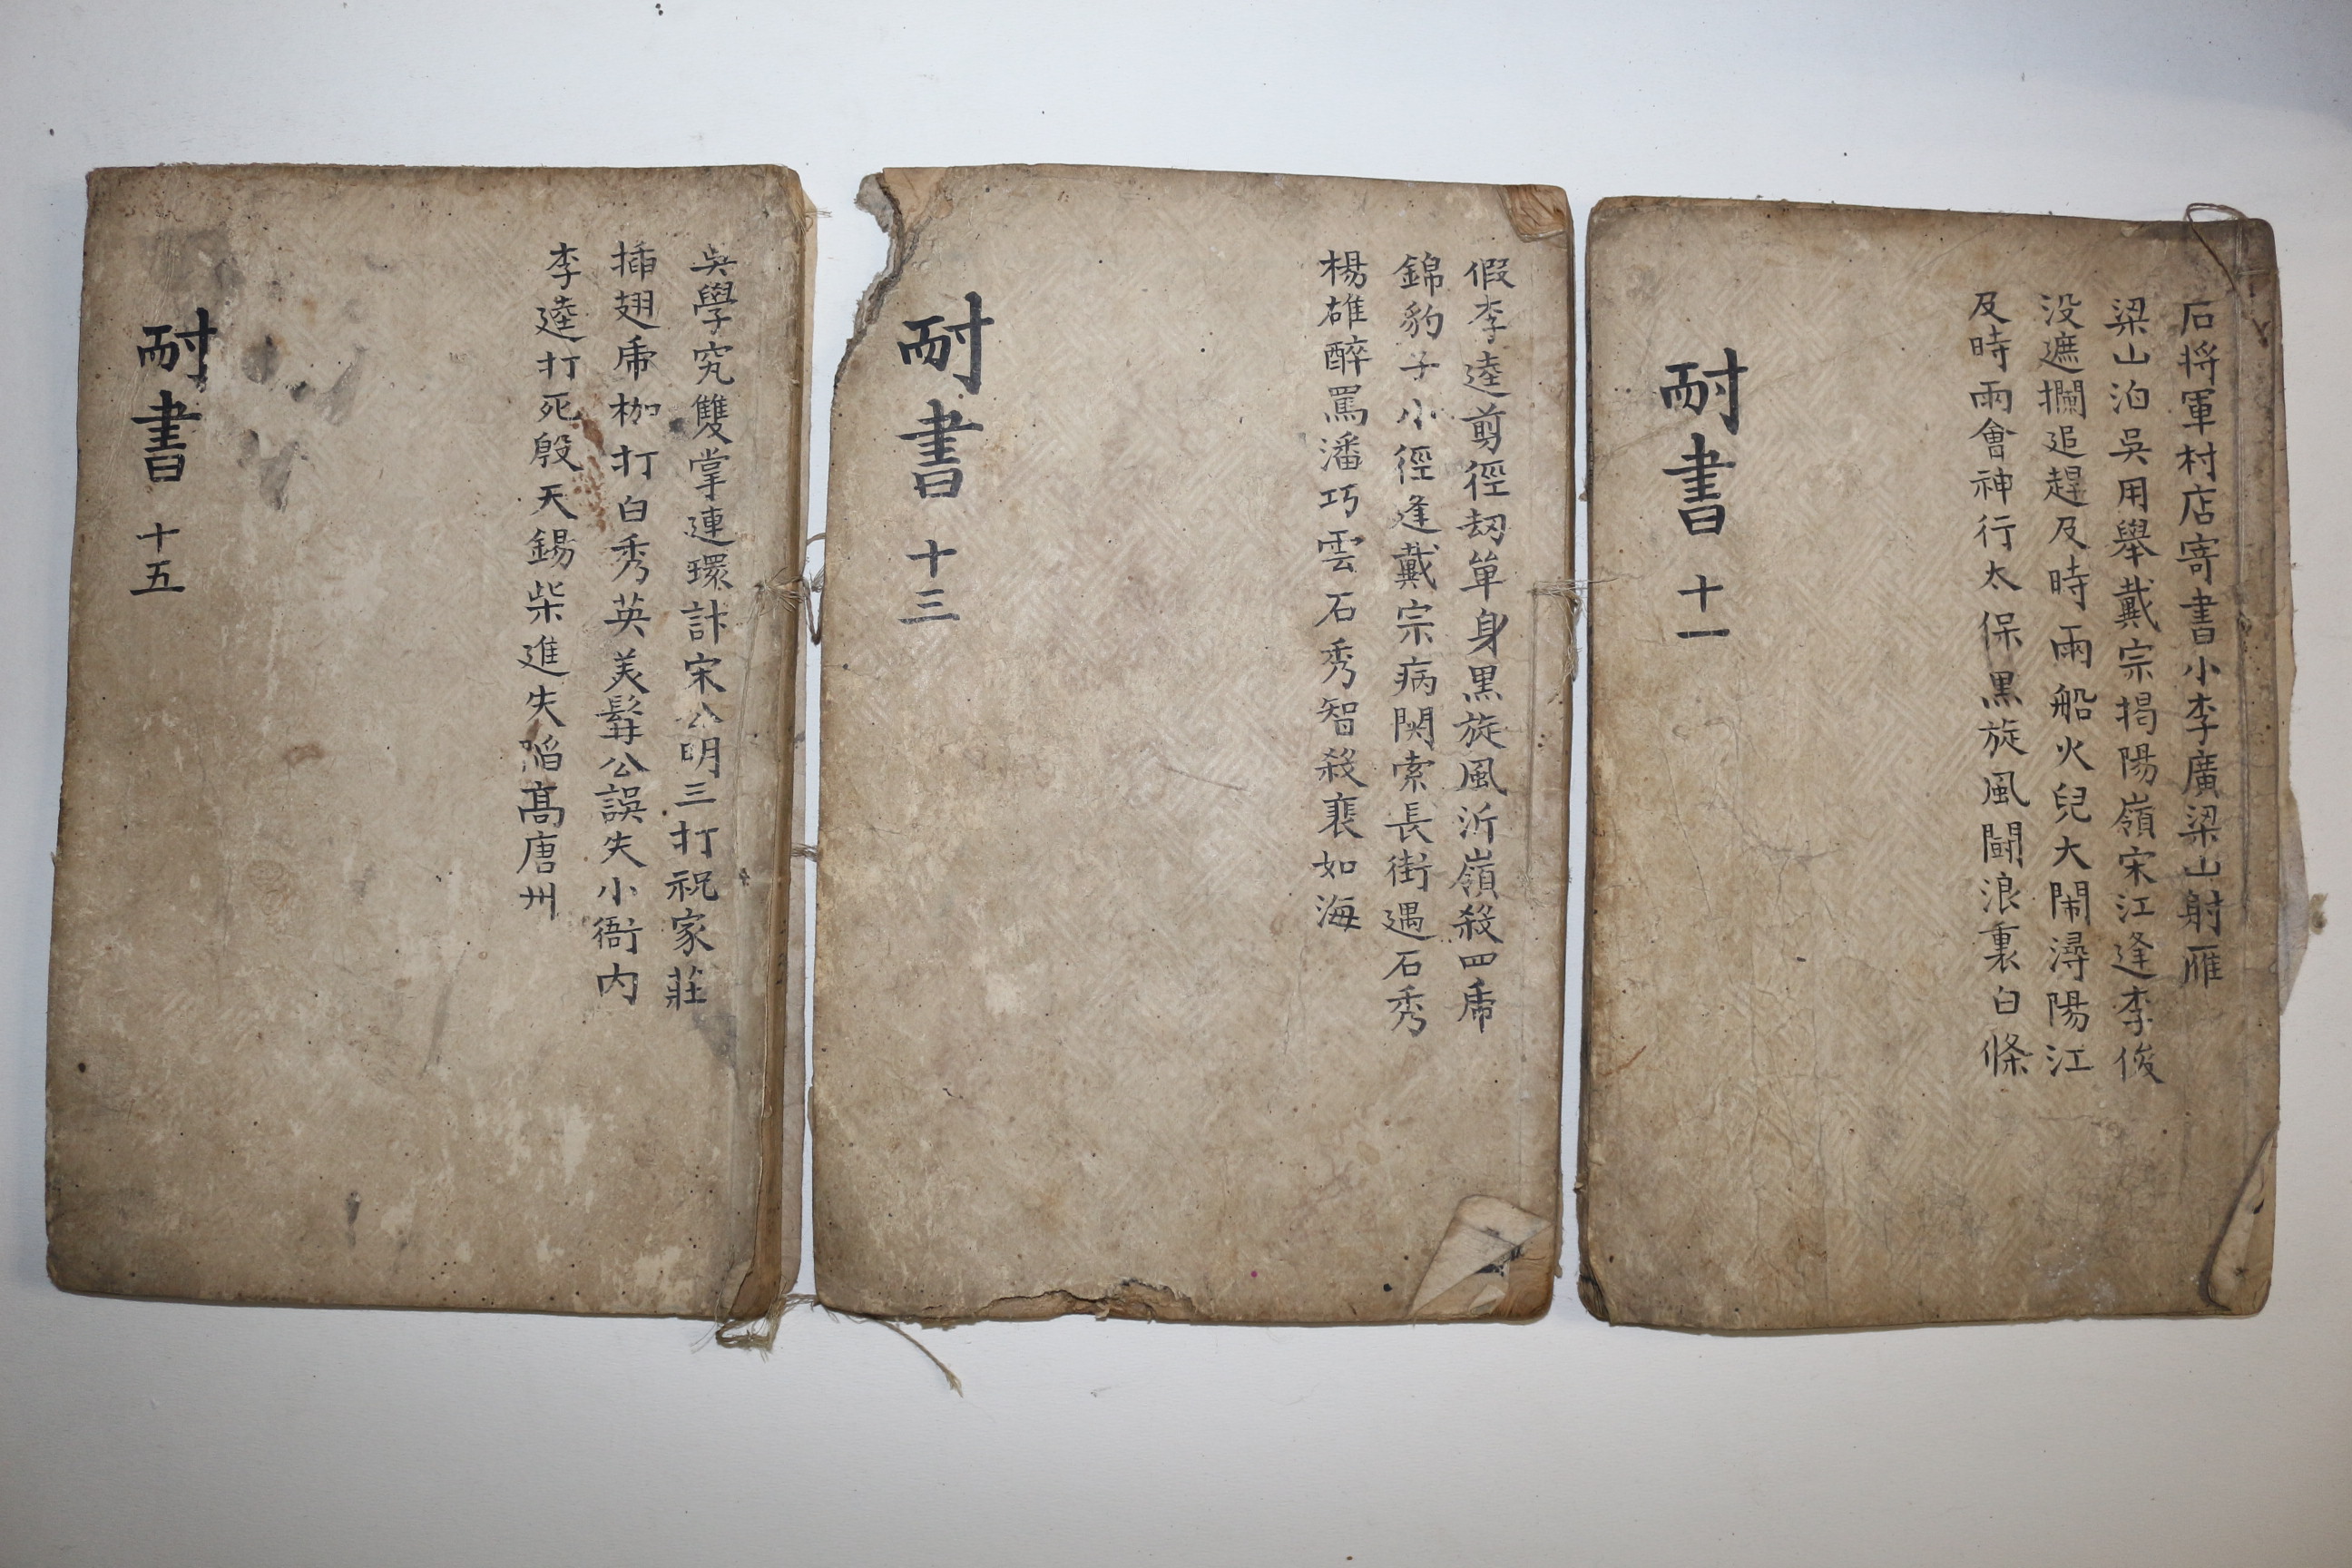 石將軍村店寄書小李廣梁山射雁
梁山泊吳用舉戴宗揭陽嶺宋江逢李俊
没遮攔追趕及時雨船火兒大鬧潯陽江
及時雨會神行太保黑旋風鬪浪裏白條
耐書 十一
假李逵剪徑刼单身黑旋風沂嶺殺四虎
錦豹子小徑逢戴宗病関索長街遇石秀
楊雄醉罵潘巧雲石秀智殺裴如海
耐書 十三
吳學究雙掌連環計宋公明三打祝家莊
插翅虎枷打白秀英美髯公誤失小衙内
李逵打死殷天錫柴進失陷髙唐州
耐書 十五